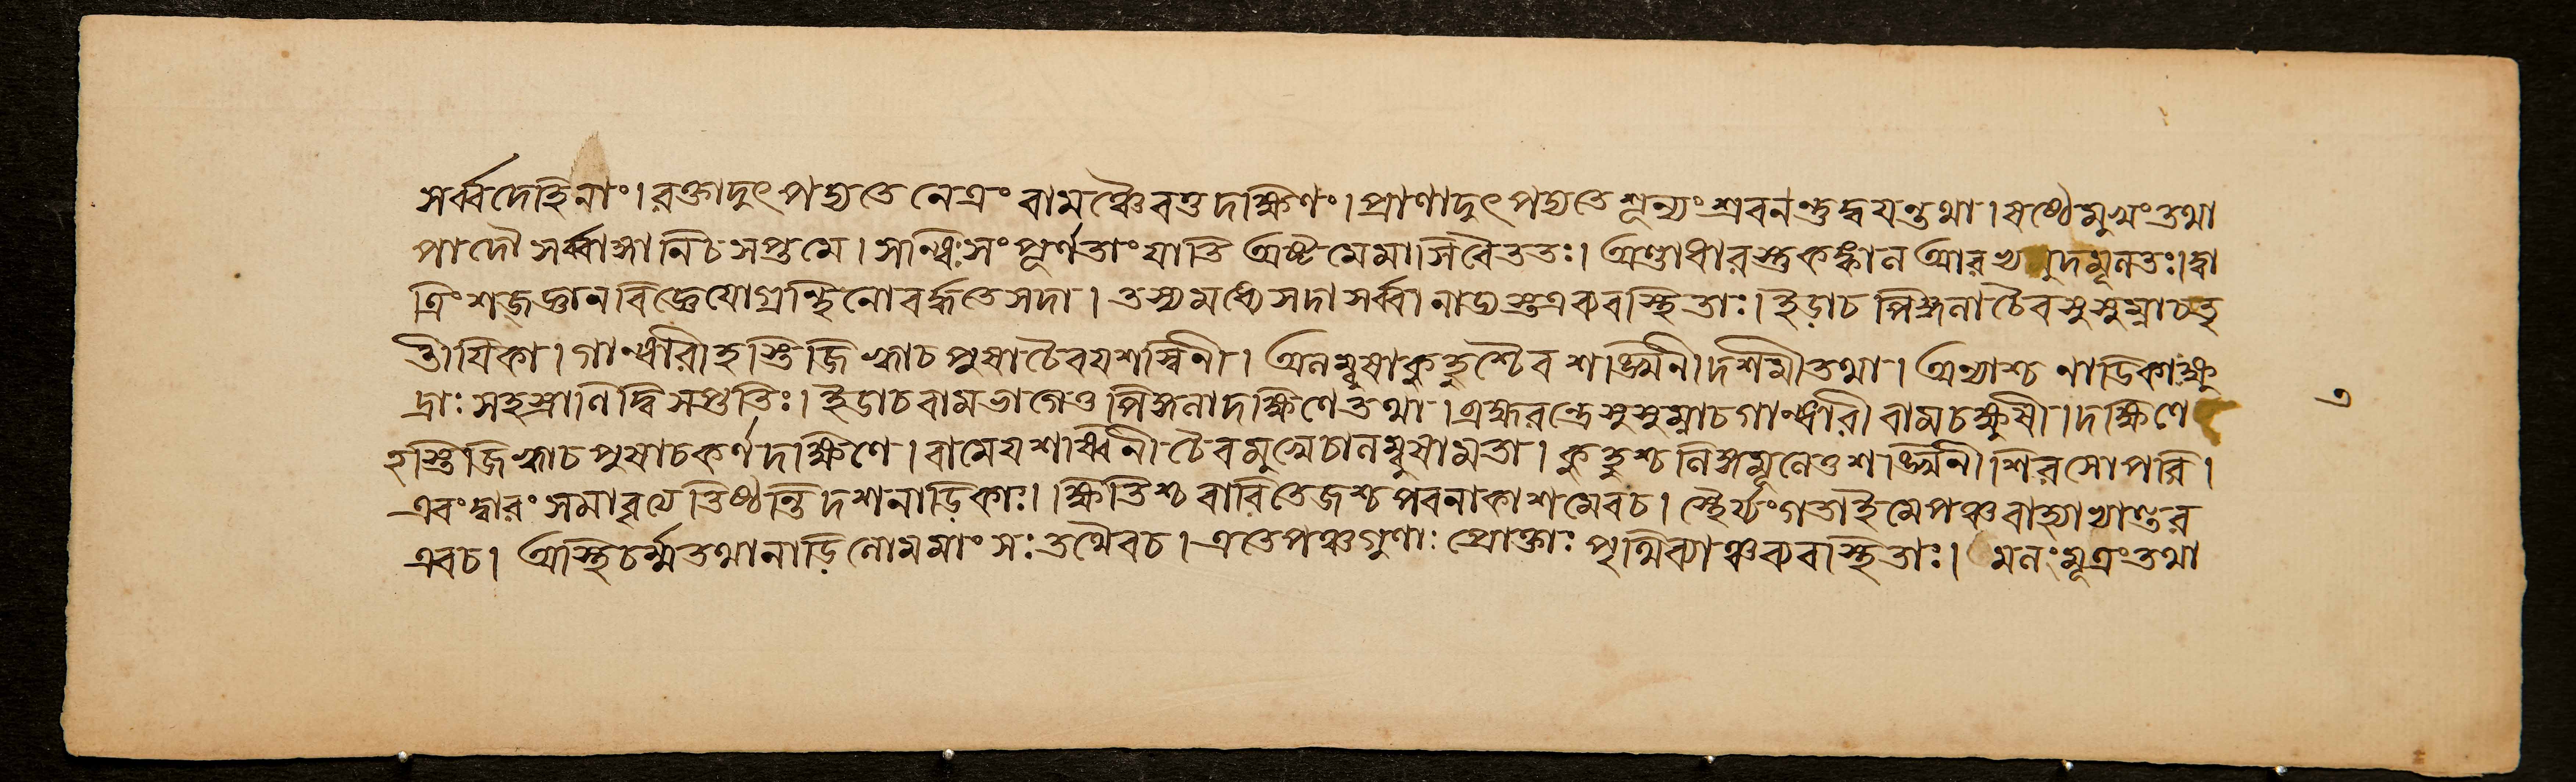 সর্ব্বদেহিনাং। রক্তাদুৎপদ্যতে নেত্রং বামঞ্চৈবতু দক্ষিণং। প্রাণাদুৎপদ্যতে শূন্যং শ্রবনন্তু দ্বয়ন্তথা। ষষ্ঠে মুখং তথা
পাদৌ সর্ব্বাঙ্গানি চ সপ্তমে। সন্ধিঃ সংপূর্ণতাং যাতি অষ্টমে মাসি বৈ ততঃ। অণ্ডাধারস্তু কঙ্কাল আরখ মূলতঃ। দ্বা
ত্রিংশজ্জ্ঞান বিজ্ঞেয়ো গ্রন্থিনো বর্দ্ধতে সদা। তস্য মধ্যে সদা সর্ব্বা নাড্যস্তত্র ব্যবস্থিতাঃ। ইড়া চ পিঙ্গলা চৈব সুসুম্না চ তৃ
তীয়িকা। গান্ধারী হস্তিজিহ্বা চ পুষা চৈব যশস্বিনী। অলম্বুষা কুহুশ্চৈব শঙ্খিনী দশমী তথা। অন্যাশ্চ নাডিকাঃ ক্ষু
দ্রাঃ সহস্রাণি দ্বিসপ্ততিঃ। ইড়া চ বামভাগে তু পিঙ্গলা দক্ষিণে তথা। ব্রহ্মরন্ধ্রে সুসুম্না চ গান্ধারী বামচক্ষুষী। দক্ষিণে ৩
হস্তিজিহ্বা চ পুষা চ কর্ণ দক্ষিণে। বামে যশস্বিনী চৈব মুখে চালম্বুষা মতা। কুহুশ্চ লিঙ্গমূলে তু শঙ্খিনী শিরসোপরি।
এবং দ্বারং সমাবৃত্যে তিষ্ঠন্তি দশ নাড়িকাঃ। ক্ষিতিশ্চ বারি তেজশ্চ পবনাকাশমেব চ। স্থৈর্য্যং গতা ইমে পঞ্চ বাহ্যাভ্যন্তর
এব চ। অস্থি চর্ম্ম তথা নাড়ি লোম মাংসঃ তথৈব চ। এতে পঞ্চগুণাঃ প্রোক্তাঃ পৃথিব্যাঞ্চ ব্যবস্থিতাঃ। মলং মূত্রং তথা